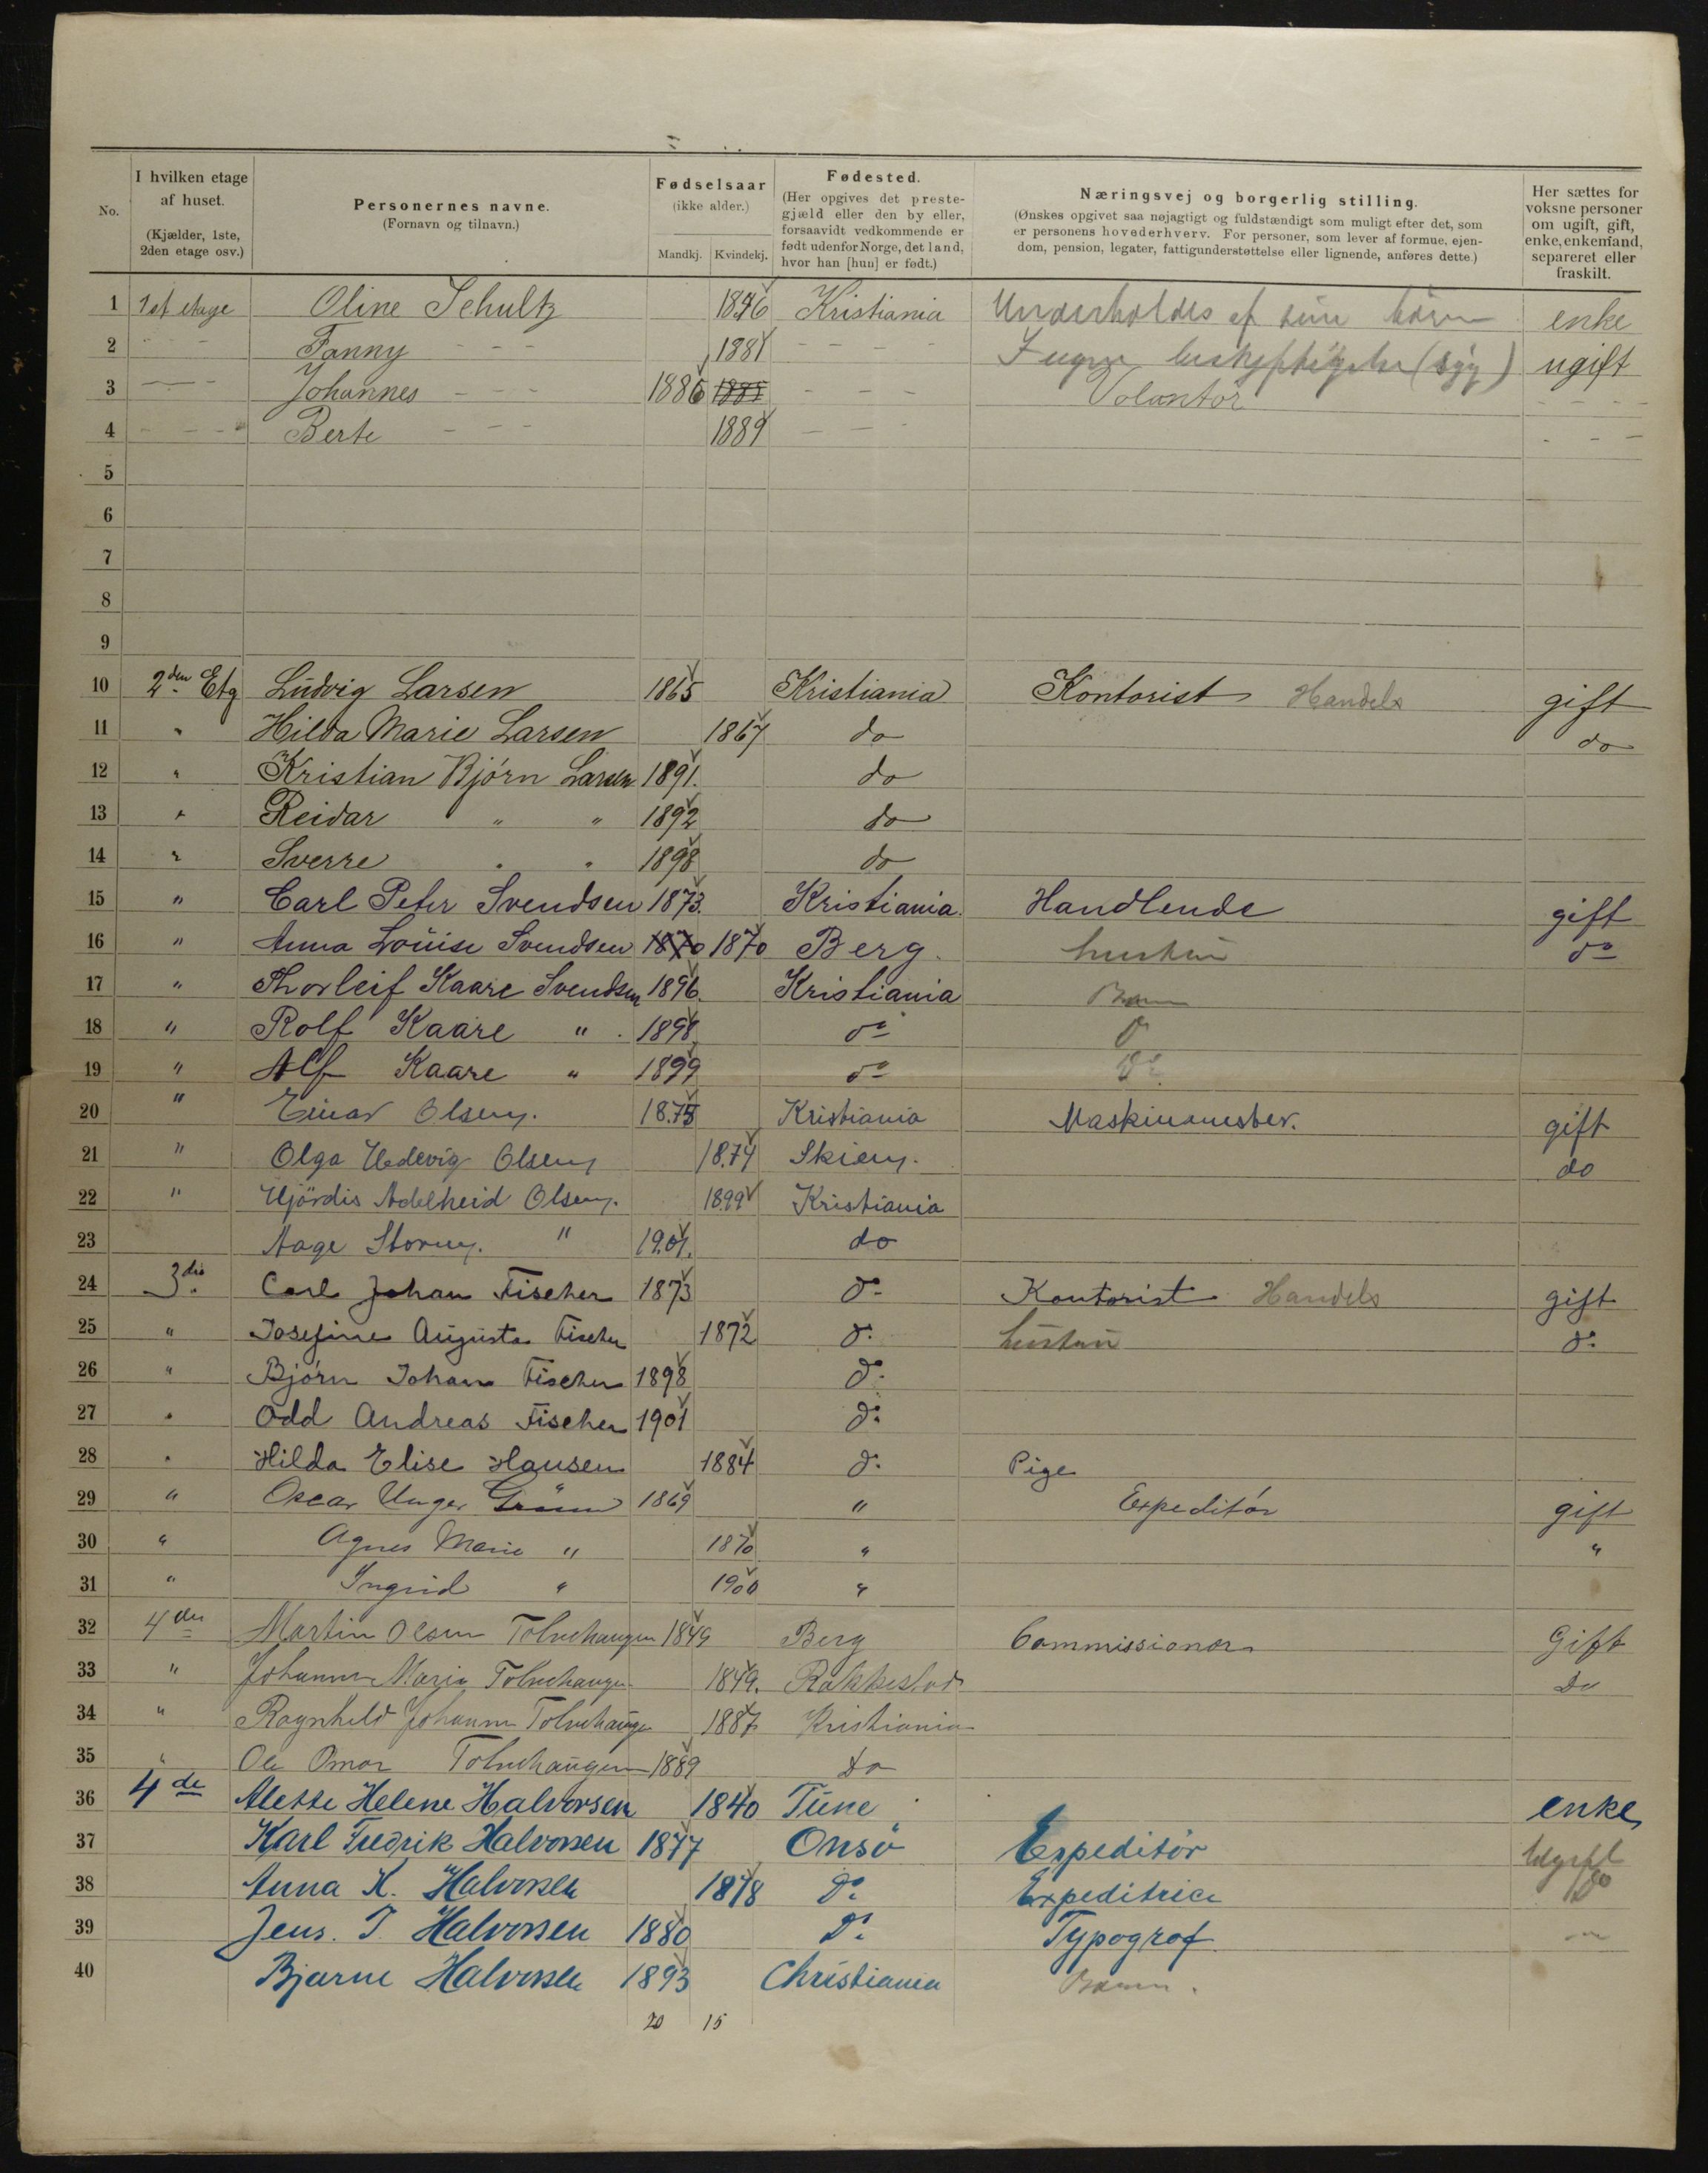 No.
I hvilken etage af huset.
(Kjælder, 1ste, 2den etage osv.)
Personernes navne.
(Fornavn og tilnavn.)
Fødselsaar
(ikke alder.)
Mandkj. Kvindekj.
Fødested.
(Her opgives det prestegjæld eller den by eller, forsaavidt vedkommende er født udenfor Norge, det land, hvor han [hun] er født.)
Næringsvej og borgerlig stilling.
(Ønskes opgivet saa nøjagtigt og fuldstændigt som muligt efter det, som er personens hovederhverv. For personer, som lever af formue, ejendom, pension, legater, fattigunderstøttelse eller lignende, anføres dette.)
Her sættes for voksne personer om ugift, gift, enke, enkemand, separeret eller fraskilt.
1 1st etage Oline Schultz 1846 Kristiania Underholdes af sine børn enke
2 - - Fanny - - - 1881 - - - - Ingen beskjeftigelse (syg) ugift
3 - - - Johannes - - - 1886 1885 - - - Volontør - - - -
4 - - - Berte - - - 1889 - - - - - -
5
6
7
8
9
10 2den Etg Ludvig Larsen 1865 Kristiania Kontorist Handels gift
11 " Hilda Marie Larsen 1867 do do
12 " Kristian Bjørn Larsen 1891. do
13 " Reidar " " 1892 do
14 " Sverre " " 1898 do
15 " Carl Peter Svendsen 1873. Kristiania. Handlende gift
16 " Anna Louise Svendsen 1870 1870 Berg. hustru do
17 " Thorleif Kaare Svendsen 1896. Kristiania Barn
18 " Rolf Kaare " . 1898. do
19 " Alf Kaare " 1899 do do
20 " Einar Olsen. 1875 Kristiania Maskinmester. gift
21 " Olga Hedevig Olsen 1874 Skien. do
22 " Hjördis Adelheid Olsen. 1899 Kristiania
23 Aage Storm. " 1901. do
24 3die Carl Johan Fischer 1873 do Kontorist Handels gift
25 " Josefine Augusta Fischer 1872 do hustru do
26 " Bjørn Johan Fischer 1898 do
27 " Odd Andreas Fischer 1901 do
28 " Hilda Elise Hansen 1884 do Pige
29 " Oscar Unger 1869 " Expeditør gift
30 " Agnes Marie " 1870 " "
31 " Ingrid " 1900 "
32 4de Martin Olsen Tolvehaugen 1849 Berg Commissionær Gift
33 " Johanne Maria Tolvehaugen 1849. Rakkestad Do
34 " Ragnhild Johanne Tolvehaugen 1887 Kristiania
35 " Ole Omar Tolvehaugen 1889 Do
36 4de Alette Helene Halvorsen 1840 Tune enke
37 Karl Fredrik Halvorsen 1877 Onsö Expeditör Ugift
38 Anna K. Halvorsen 1878 Do Expeditrice Do
39 Jens. T. Halvorsen 1880 Do Typograf
40 Bjarne Halvorsen 1893 Christiania Barn.
20 15